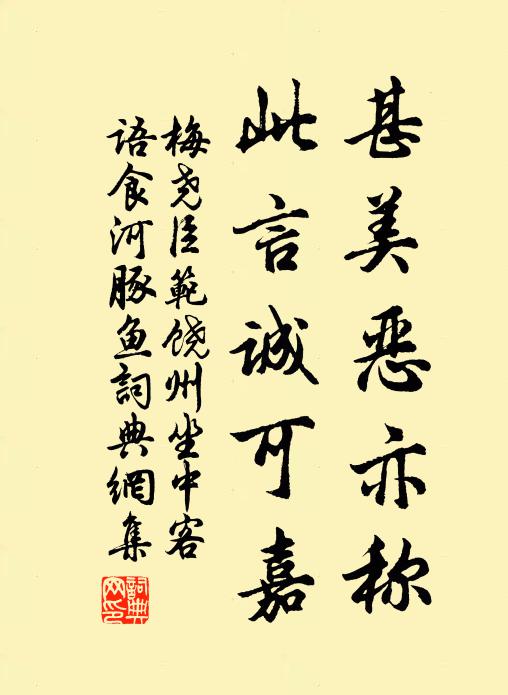 甚美恶亦称
此言诚可嘉
梅尧臣範饶州坐中客
语食河豚鱼詞典網集
詞典網印